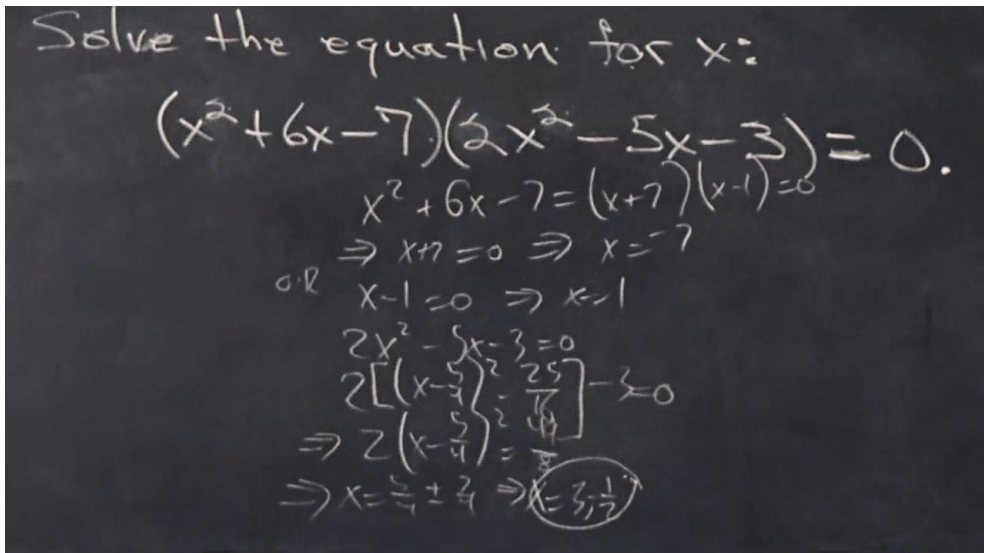 Solve the equation for x:
(x²+6x-7)(2x²-5x-3)=0.
x²+6x-7=(x+7)(x-1)=0
⇒ x+7=0 ⇒ x=-7
OR x-1=0 ⇒ x=1
2x²-5x-3=0
2[(x-5/4)²-25/16]-3=0
⇒ 2(x-5/4)²=49/8
⇒ x=5/4±7/4 ⇒ x=3,-1/2